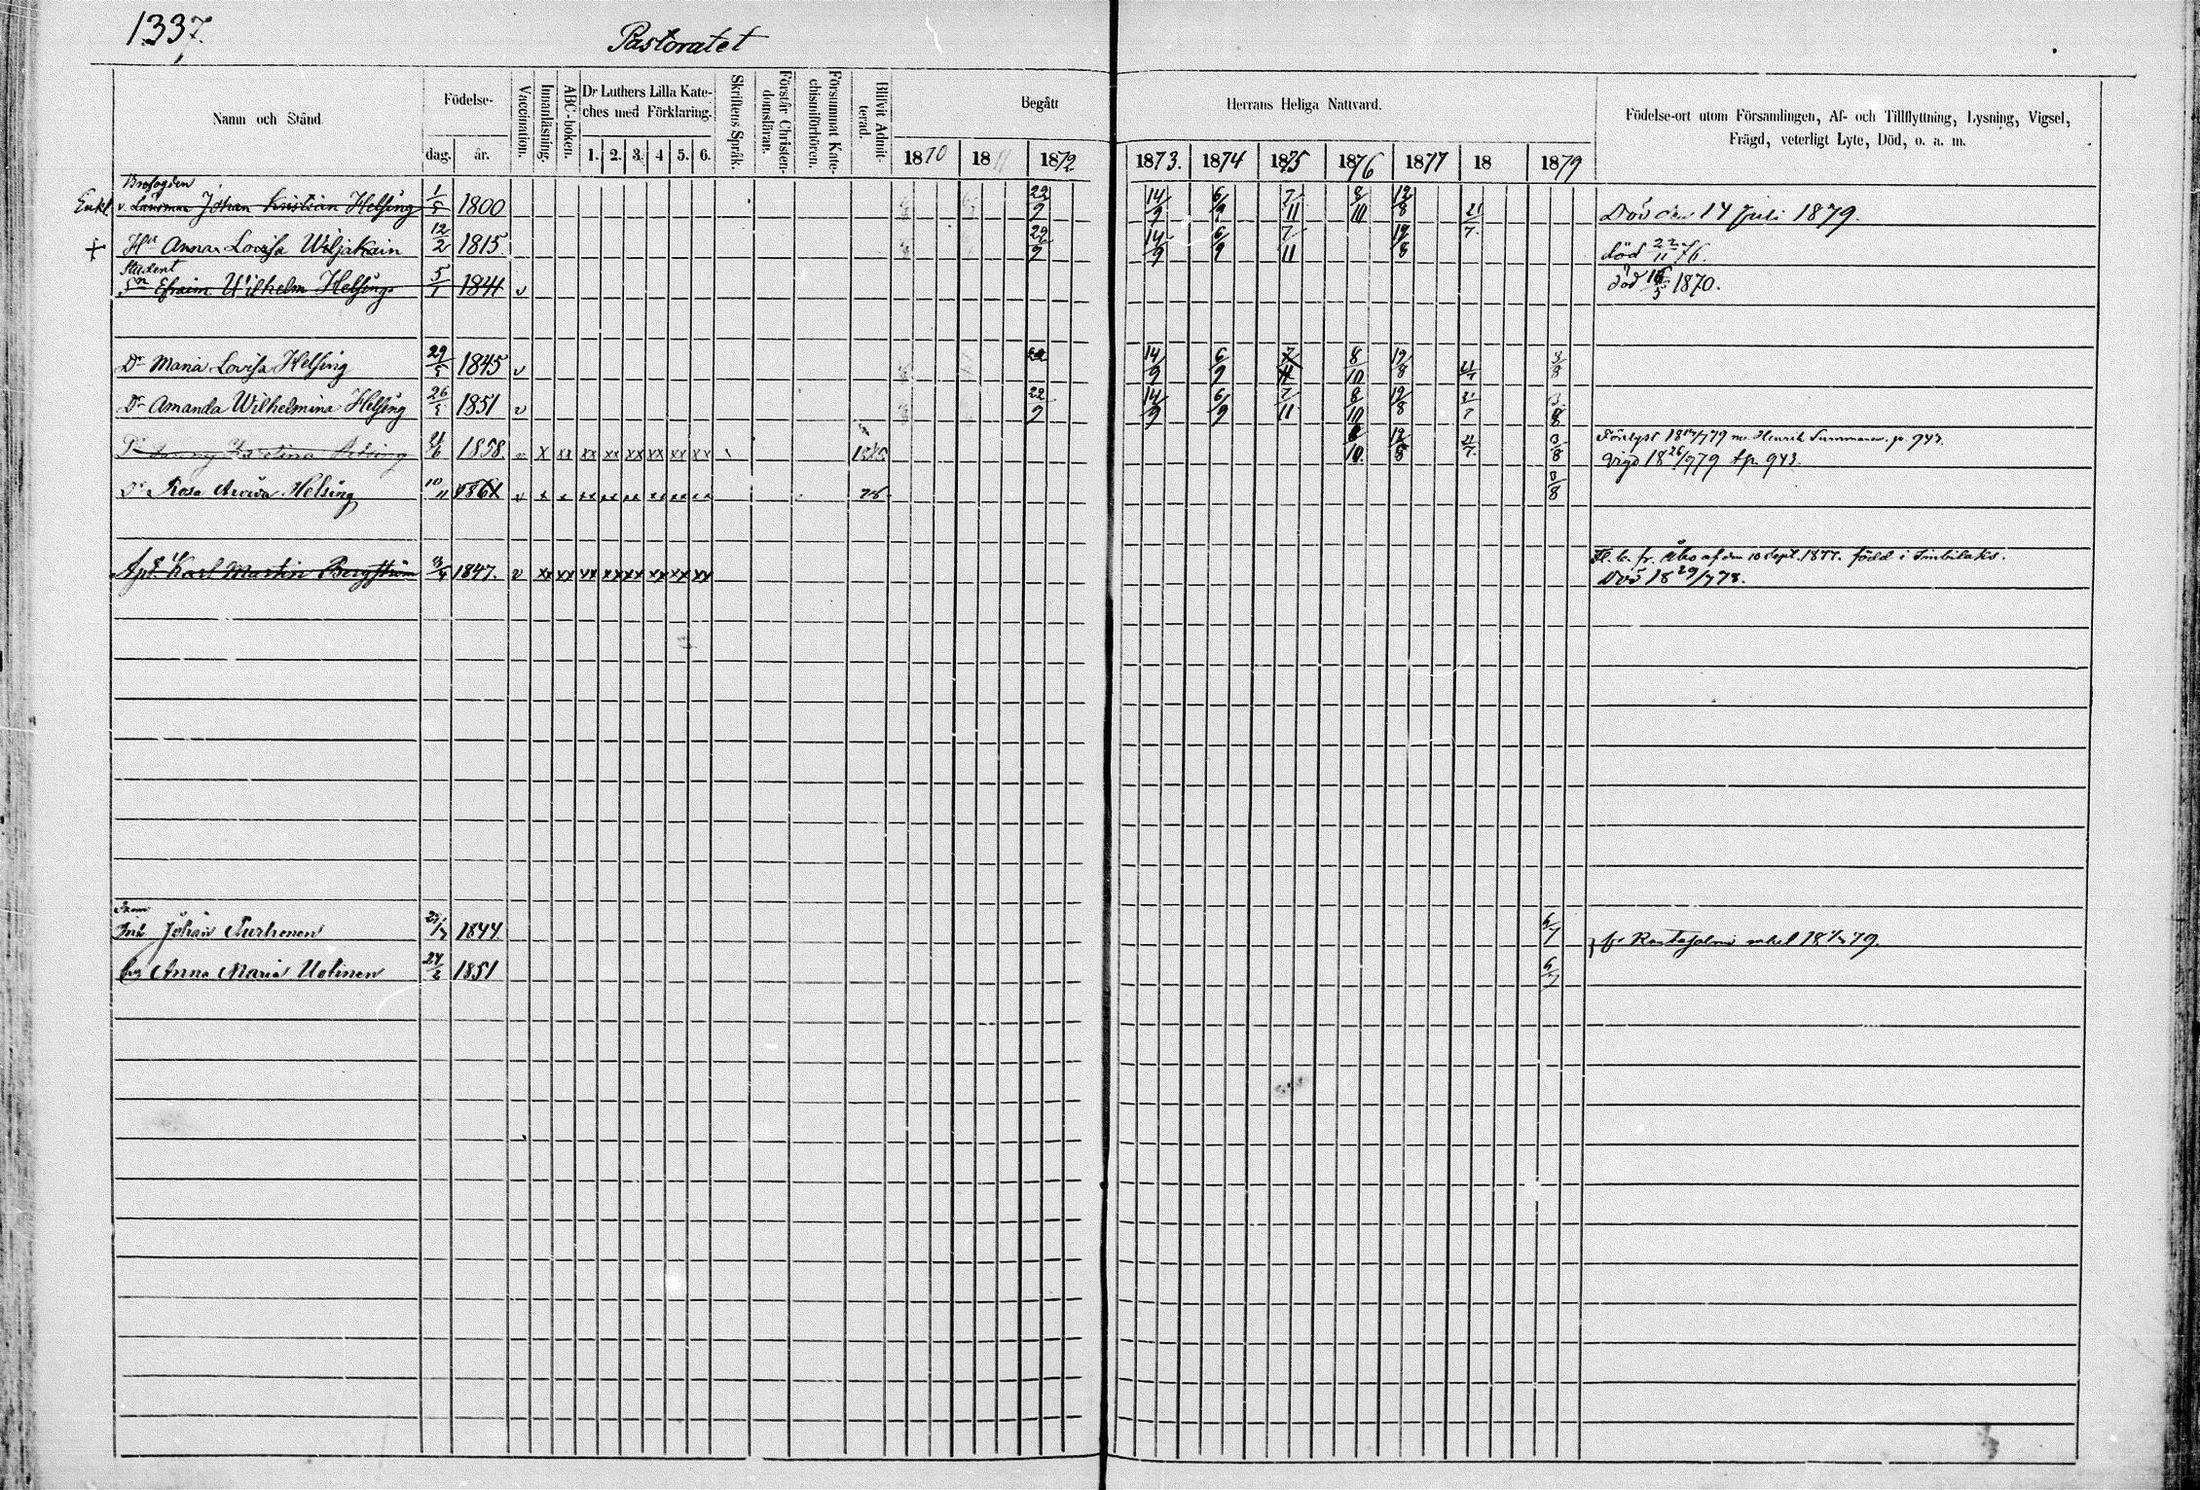 1337.
Pastoratet
Namn och Stånd
Födelse-
dag. år.
Vaccination.
Innanläsning.
ABC-boken.
Dr Luthers Lilla Kate-
ches med Förklaring.
1. 2. 3. 4 5. 6.
Skriftens Språk.
Förstår Christen-
domsläran.
Försummat Kate-
chismiförhören.
Blifvit Admit-
terad.
Begått
Herrans Heliga Nattvard.
1870 18 1872 1873. 1874 1875 1876 1877 18 1879
Födelse-ort utom Församlingen, Af- och Tillflyttning, Lysning, Vigsel,
Frägd, veterligt Lyte, Död, o. a. m.
Enkl v. Länsman Johan Kristian Helsing 1/5 1800 22/9 14/9 6/9 7/11 8/10 12/8 21/7. Döv den 17 Juli 1879.
+ Hu Anna Lovisa Wiljakain 12/2 1815. 22/9 14/9 6/9 7/11 12/8 död 22/11 76.
Student
Sn Efraim Wilhelm Helsing 5/1 1844 v död 16/5 1870.
Dr Maria Lovisa Helsing 29/5 1845 v 22 14/9 6/9 7/11 8/10 12/8 21/7 3/8
Dr Amanda Wilhelmina Helsing 26/5 1851 v 22/9 14/9 6/9 7/11 8/10 12/8 21/7 3/8
1858. x xx xx xx xx xx xx xx 8/10. 12/8 21/7. 3/8 m. Henrik p. 943.
Vigd 18 26/9 79 p. 943.
Dr Rosa Helsing 10/11 1861 v 78 3/8
Karl Martin Bergström 1847. v xx xx xx xx xx xx xx xx fr. Åbo af den 10 Sept. 1877. född i
Död 18 29/7 78.
Johan Turhonen 1844. 6/7 fr 79.
Anna Maria Uotinen 24/2 1851 6/7